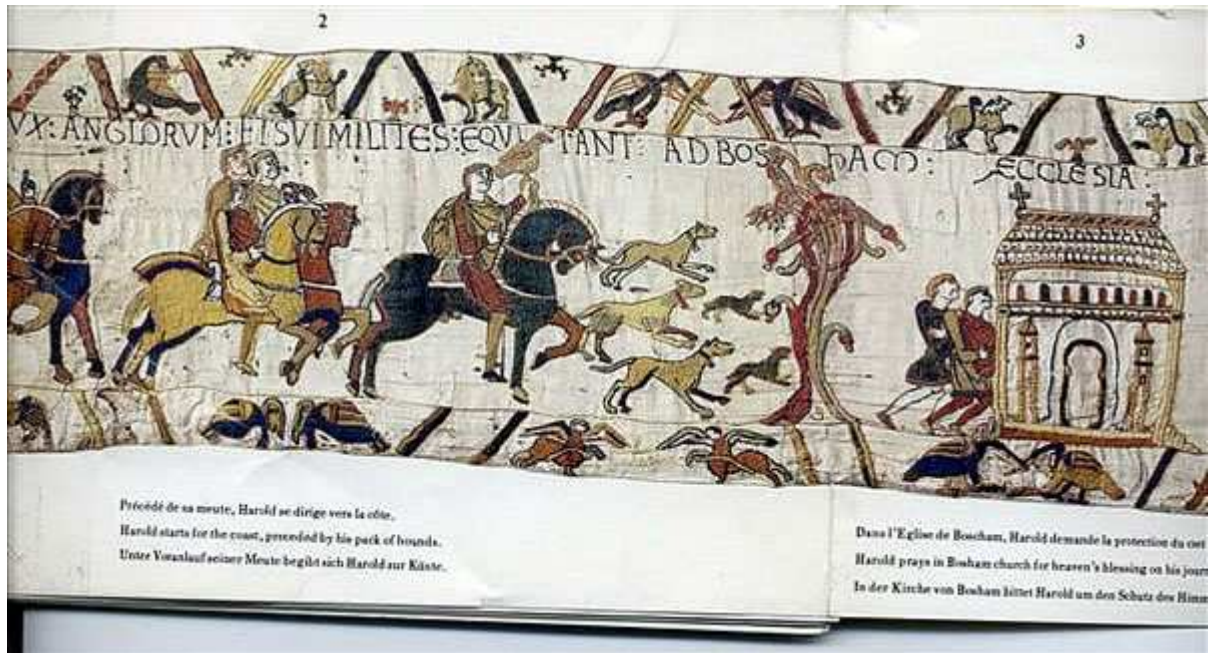 2
3
VX: ANGLORVM: ET SVI MILITES: EQVI TANT: AD BOS hAM:
ECCLESIA:
Précédé de sa meute, Harold se dirige vers la côte.
Harold starts for the coast, preceded by his pack of hounds.
Unter Voranlauf seiner Meute begibt sich Harold zur Küste.
Dans l'Eglise de Boscham, Harold demande la protection du ciel
Harold prays in Bosham church for heaven's blessing on his journ
In der Kirche von Bosham bittet Harold um den Schutz des Himm